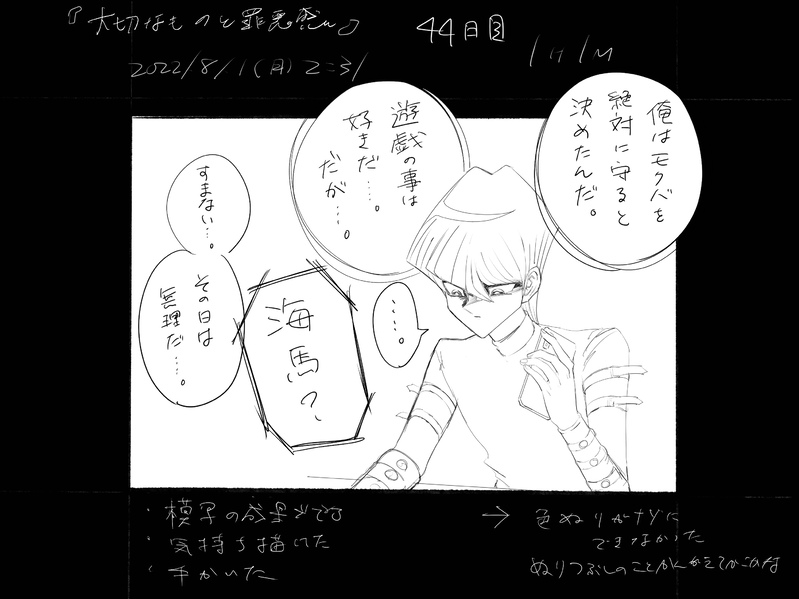 『大切なものと罪悪感』 44日目
2022/8/1(月) 2:31 1H1M
俺はモクバを
絶対に守ると
決めたんだ。
遊戯の事は
好きだ…。
だが…。
……。
海馬?
すまない…。
その日は
無理だ……。
・模写の成果が出る
・気持ち描けた
・手かいた
→ 色ぬりがナメに
できなかった
ぬりつぶしのことかんがえてかこうな